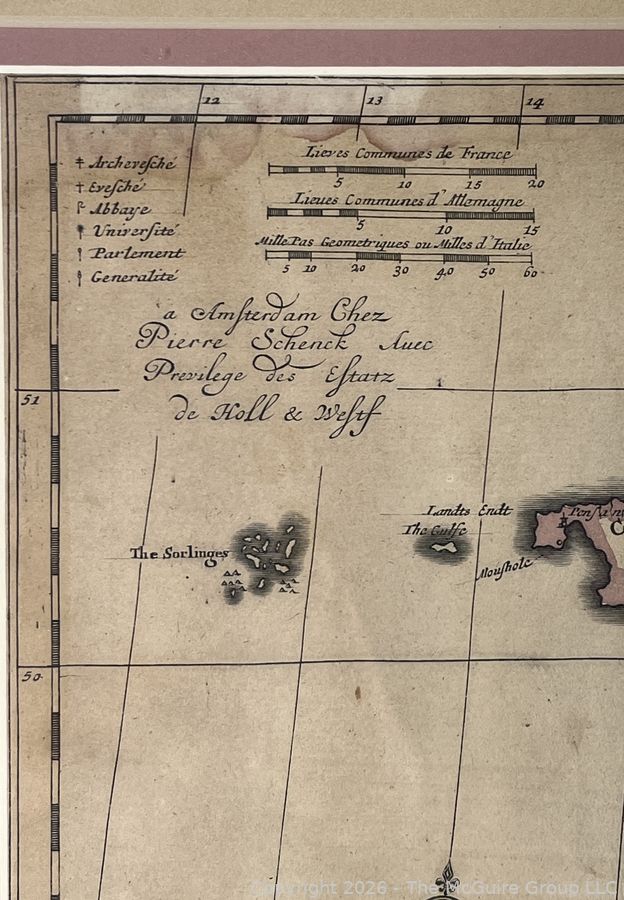 12 13 14
Archevesché
Evesché
Abbaye
Université
Parlement
Generalité
Lieves Communes de France
5 10 15 20
Lieues Communes d'Allemagne
5 10 15
Mille Pas Geometriques ou Milles d'Italie
5 10 20 30 40 50 60
a Amsterdam Chez
Pierre Schenck Avec
Previlege des Estatz
de Holl & Westf
51
Landts Endt
The Gulfe
The Sorlinges
Moushole
50
Copyright 2026 - The McGuire Group LLC